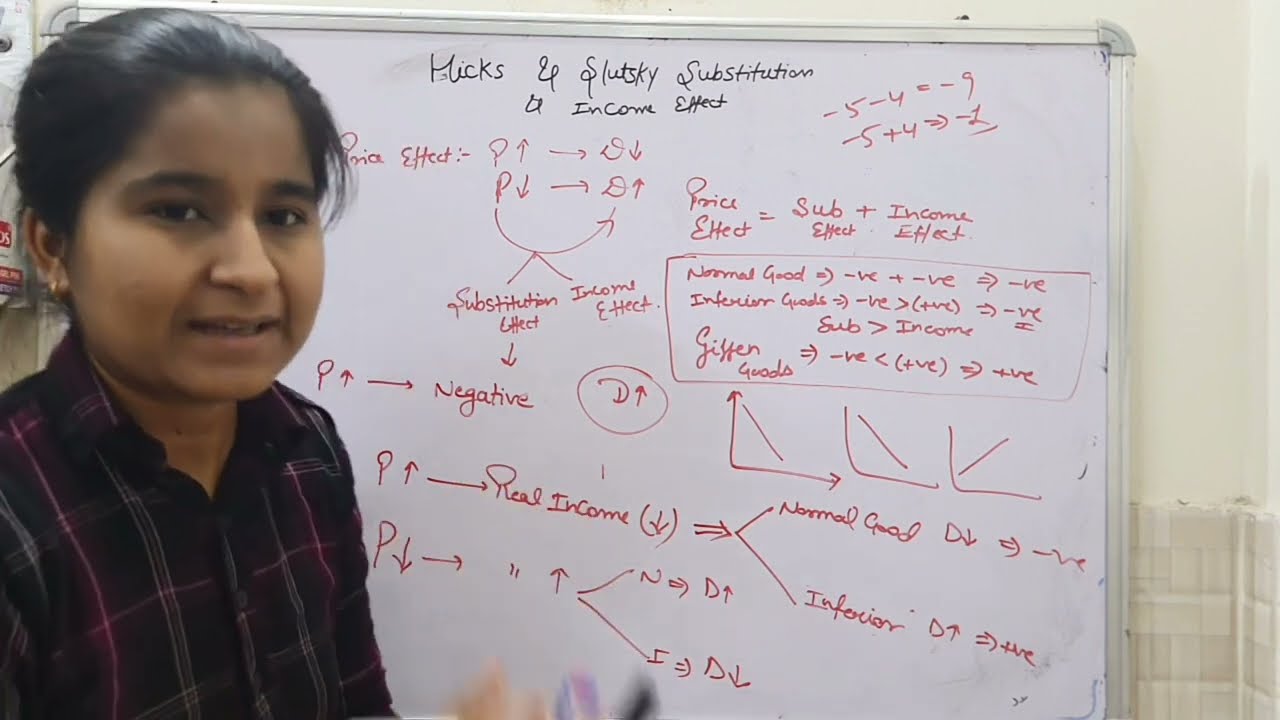 Hicks & Slutsky Substitution
& Income Effect
-5-4 = -9
-5+4 => -1
Price Effect:- P↑ → D↓
P↓ → D↑
Price Effect = Sub Effect + Income Effect.
Substitution Effect
Income Effect.
Normal Good => -ve + -ve => -ve
Inferior Goods => -ve > (+ve) => -ve
Sub > Income
Giffen Goods => -ve < (+ve) => +ve
P↑ → Negative
D↑
P↑ → Real Income (↓) =>
Normal Good D↓ => -ve
Inferior D↑ => +ve
P↓ → " ↑
N => D↑
I => D↓